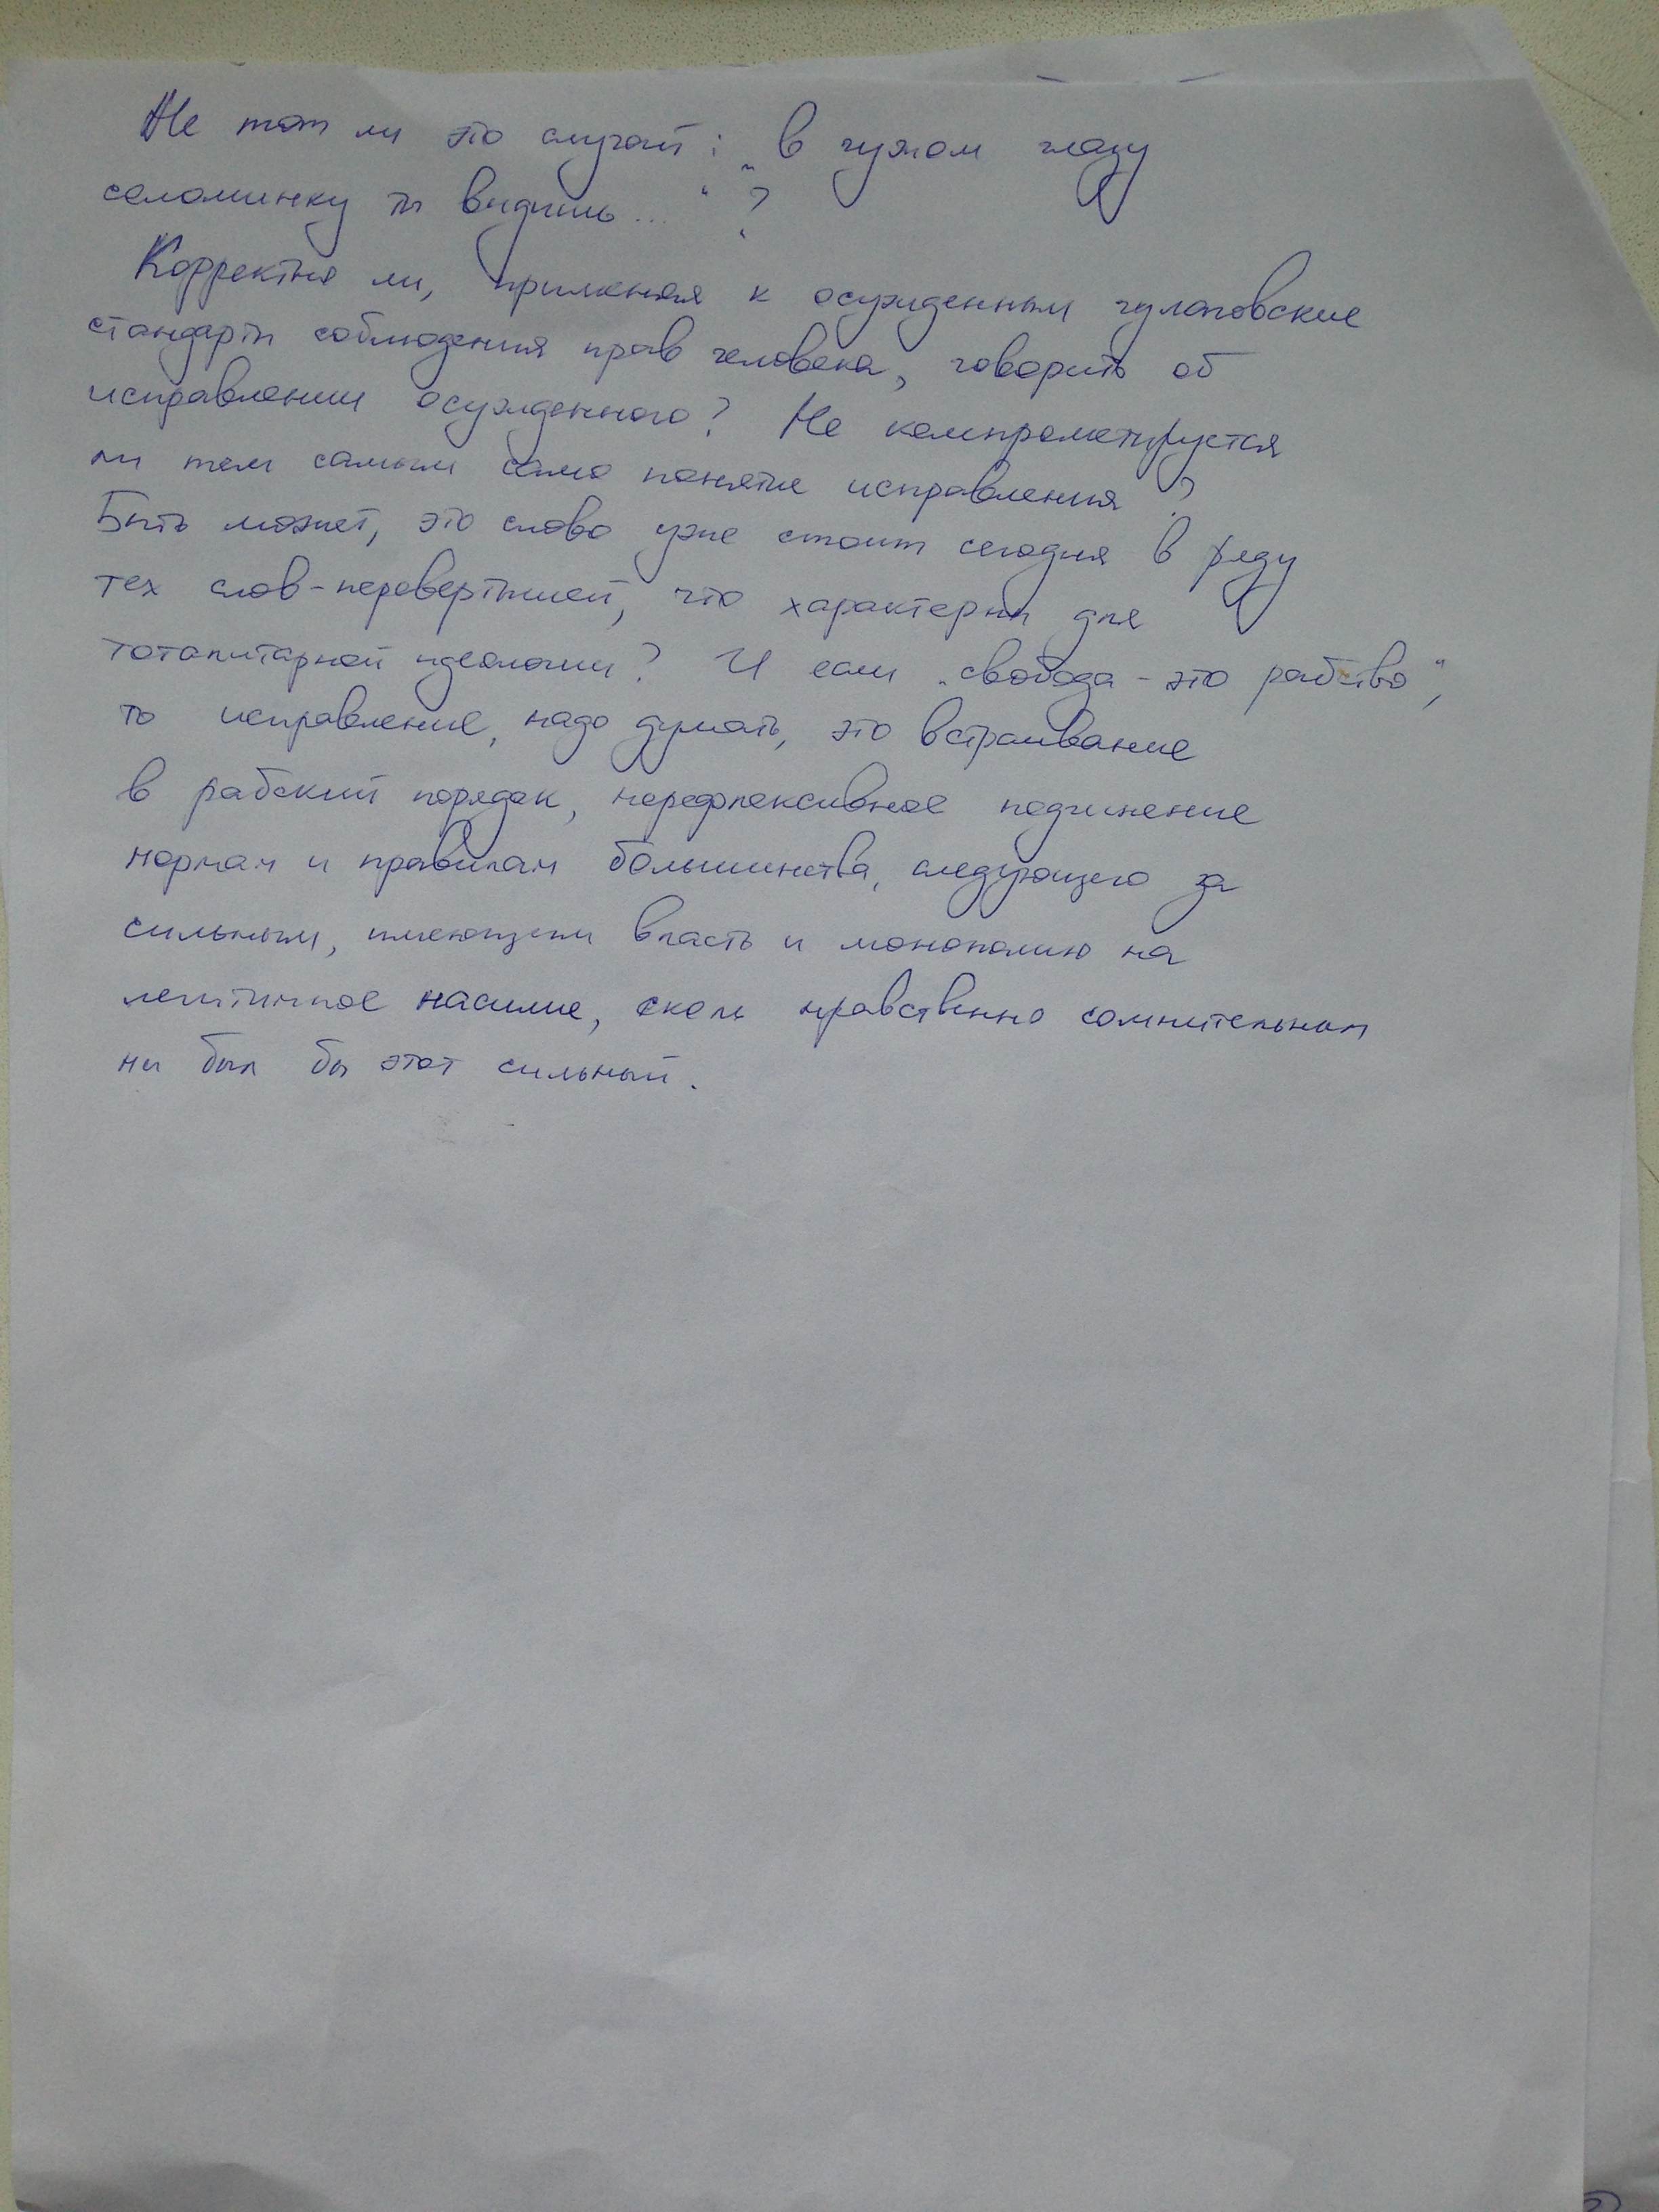 Не тот ли это случай: „в чужом глазу
соломинку ты видишь..."?
Корректно ли, применяя к осужденным гулаговские
стандарты соблюдения прав человека, говорить об
исправлении осужденного? Не компрометируется
ли тем самым само понятие исправления?
Быть может, это слово уже стоит сегодня в ряду
тех слов-перевертышей, что характерны для
тоталитарной идеологии? И если „свобода - это рабство",
то исправление, надо думать, это встраивание
в рабский порядок, нерефлексивное подчинение
нормам и правилам большинства, следующего за
сильным, имеющим власть и монополию на
легитимное насилие, сколь нравственно сомнительным
ни был бы этот сильный.